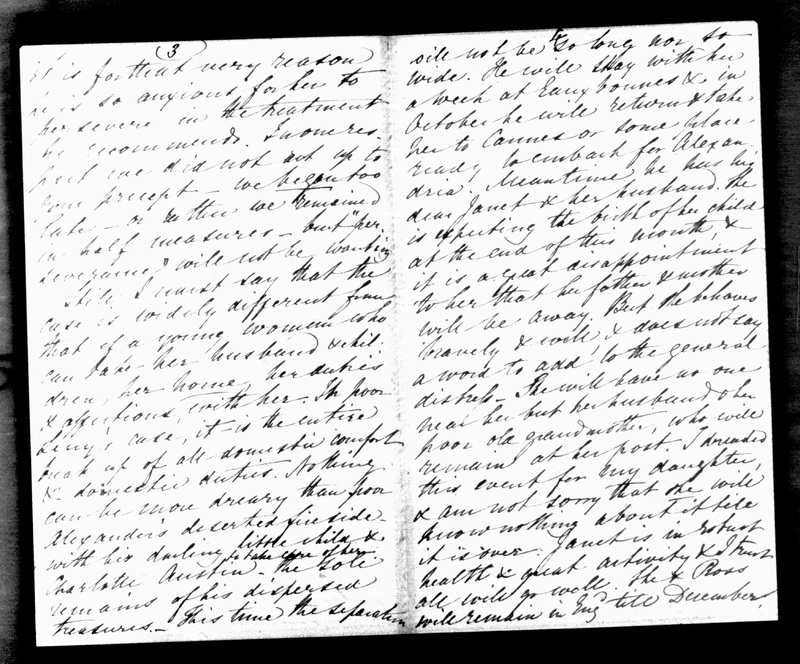 (3
it is for that very reason
he is so anxious for her to
persevere in the treatment
he recommends. In our res-
pect we did not act up to
our precept - we began too
late - or rather we remained
in half measures - but "per-
severance" will not be wanting
Still I must say that the
case is widely different from
that of a young woman who
can take her husband & chil-
dren, her home, her duties
& affections, with her. In poor
Lucy's case, it is the entire
break up of all domestic comfort
& domestic duties. Nothing
can be more dreary than poor
Alexander's deserted fireside -
with his darling little child &
to take care of her
Charlotte Austin - the sole
remains of his dispersed
treasures. - This time the separation
4
will not be so long nor so
wide. He will stay with her
a week at Eaux bonnes & in
October he will return & take
her to Cannes or some place
ready to embark for Alexan-
dria. Meantime he has his
dear Janet & her husband. She
is expecting the birth of her child
at the end of this month, &
it is a great disappointment
to her that her father & mother
will be away. But she behaves
bravely & well, & does not say
a word to add to the general
distress - She will have no one
near her but her husband & her
poor old grandmother, who will
remain at her post. I dreaded
this event for my daughter,
& am not sorry that she will
know nothing about it till
it is over. Janet is in robust
health & great activity & I trust
all will go well. She & Ross
will remain in Engd till December,